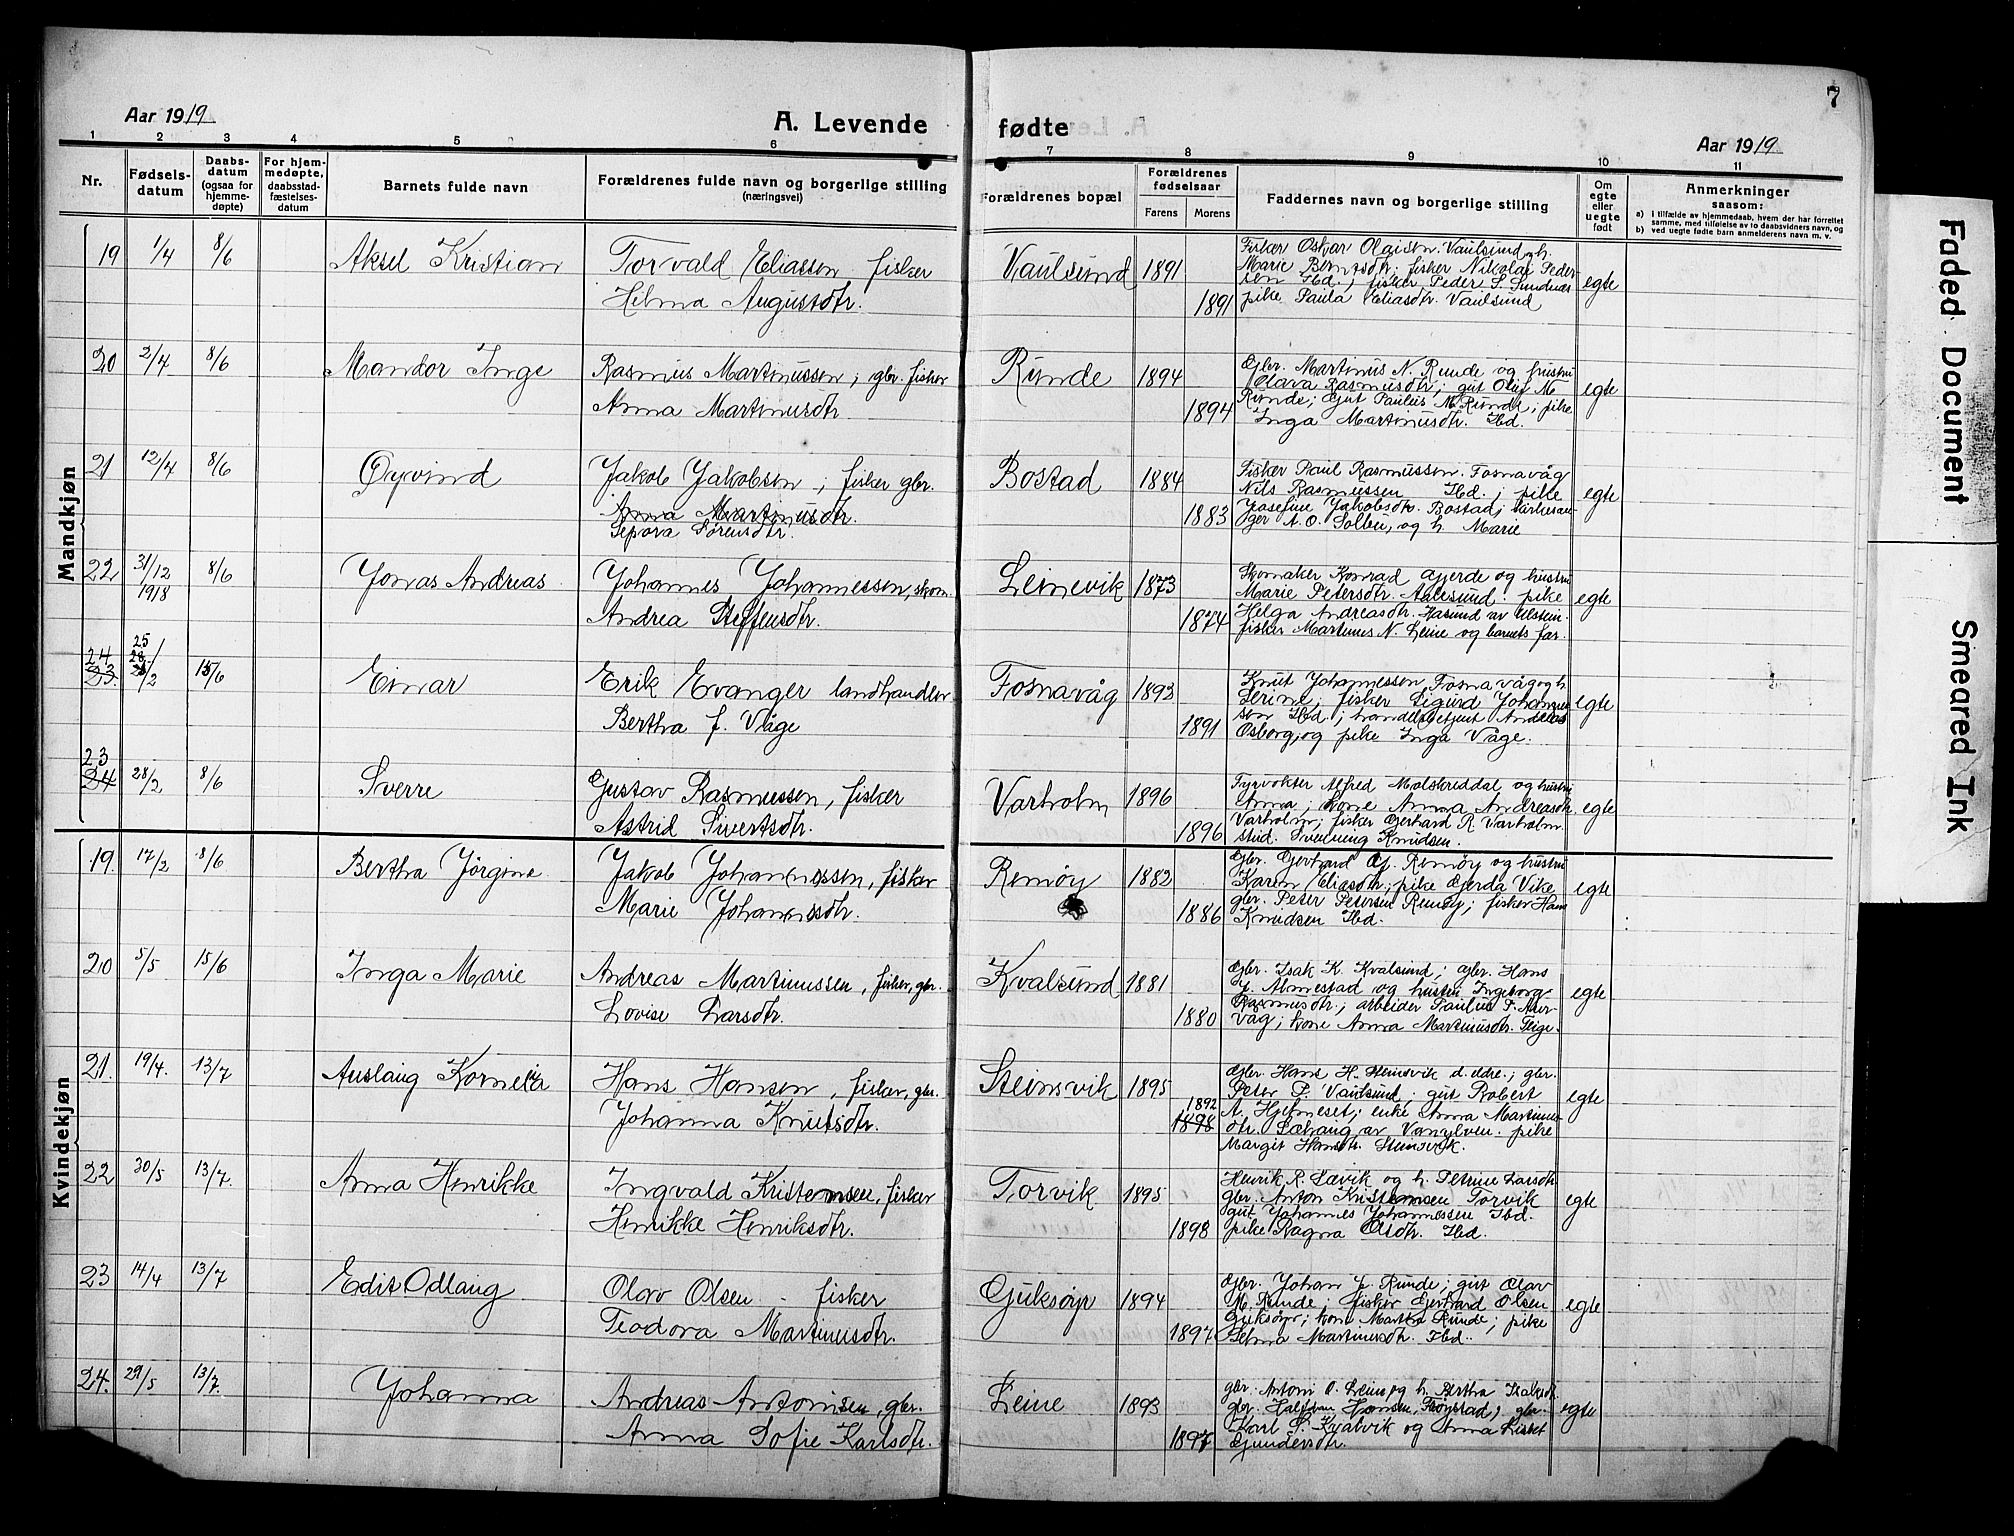 7
Aar 1919
A. Levende fødte
Aar 1919
1 2 3 4 5 6 7 8 9 10 11
Nr.
Fødsels-
datum
Daabs-
datum
(ogsaa for
hjemme-
døpte)
For hjem-
medøpte,
daabsstad-
fæstelses-
datum
Barnets fulde navn
Forældrenes fulde navn og borgerlige stilling
(næringsvei)
Forældrenes bopæl
Forældrenes
fødselsaar
Farens Morens
Faddernes navn og borgerlige stilling
Om
egte
eller
uegte
født
Anmerkninger
saasom:
a) I tilfælde av hjemmedaab, hvem der har forrettet
samme, med tilføielse av to daabsvidners navn, og
b) ved uegte fødte barn anmelderens navn m. v.
Mandkjøn
19 1/4 8/6 Aksel Kristian
Torvald Eliassen fisker
Helma Augustsdtr.
Vaulsund 1891
1891
Fisker Oskar Olaisen Vaulsund og h.
Marie Berntsdtr; fisker Nikolai Peder-
sen Ibd.; fisker Peder S. Sundnæs
pike Paula Eliasdtr. Vaulsund
egte
20 2/4 8/6 Mandor Inge
Rasmus Martinussen, gbr. fisker
Anna Martinusdtr.
Runde 1894
1894
Gbr. Martinus N. Runde og hustru
Olava Rasmusdtr; gut Oluf M
Runde; Gut Paulus M. Runde; pike
Inga Martinusdtr. Ibd.
egte
21 12/4 8/6 Øyvind
Jakob Jakobsen, fisker gbr.
Anna Martinusdtr.
Sepora Sørensdtr.
Bostad 1884
1883
Fisker Paul Rasmussen. Fosnavåg
Nils Rasmussen Ibd.; pike
Josefine Jakobsdtr. Bostad; kirkesan-
ger A. O. Solbu, og h. Marie
egte
22 31/12 1918 8/6 Jonas Andreas
Johannes Johannessen, skom.
Andrea Steffensdtr.
Leinevik 1873
1874
Skomaker Konrad Gjerde og hustru
Marie Petersdtr. Aalesund. pike
Helga Andreasdtr. Hasund av Ulstein.
fisker Martinus N. Leine og barnets far.
egte
24
23. 25
28
/2 15/6 Einar
Erik Evanger landhandler
Bertha f. Våge
Fosnavåg 1893
1891
Knut Johannessen Fosnavåg og h.
Serine, fisker Sigurd Johannes
sen Ibd.; handelsbetjent Andreas
Osborg, og pike Inga Våge.
egte
23
24 28/2 8/6 Sverre
Gustav Rasmussen, fisker
Astrid Sivertsdtr.
Varholm 1896
1896
Fyrvokter Alfred Molskreddal og hustru
Anna; kone Anna Andreasdtr.
Varholm; fisker Gerhard R. Varholm.
stud. Svenning Knudsen.
egte
Kvindekjøn
19. 17/2 8/6 Bertha Jørgine
Jakob Johannessen, fisker
Marie Johannsdtr.
Remøy 1882
1886
Gbr. Gerhard G. Remøy og hustru
Karen Eliasdtr; pike Gjerda Vike
gbr. Peter Petersen Remøy; fisker Hans
Knudsen Ibd.
egte
20 5/5 15/6 Inga Marie
Andreas Martinussen, fisker, gbr.
Lovise Larsdtr.
Kvalsund 1881
1880
Gbr. Isak K. Kvalsund; gbr. Hans
J. Almestad og hustru Ingeborg
Rasmusdtr.; arbeider Paulus P.
våg; kone Anna Martinusdtr.
egte
21. 19/4. 13/7 Auslaug Kornelia
Hans Hansen, fisker, gbr.
Johanna Knutsdtr.
Steinsvik 1895
1892
1898
Gbr. Hans H. Steinsvik d. eldre; gbr.
Peter P. Vaulsund; gut Robert
A. Hjelmeset; enke Anna Martinus-
dtr. Sæhaug av Vanylven. pike
Margit Hansdtr. Steinsvik.
egte
22 30/5 13/7. Anna Henrikke
Ingvald Kristensen, fisker
Henrikke Henriksdtr.
Torvik 1895
1898
Henrik R. Sævik og h. Petrine Larsdtr.
gbr. Anton Kristensen Torvik
gut Johannes Johannessen Ibd.
pike Ragna Olsdtr. Ibd.
egte
23 14/4 13/7 Edit Odlaug
Olav Olsen - fisker
Teodora Martinusdtr.
Gjuksøyr 1894
1897
Gbr. Johan J. Runde; gut Olav
M. Runde, fisker Gerhard Olsen
Gjuksøyr; kone Marta Runde; pike
Selma Martinusdtr. Ibd.
egte
24. 29/5 13/7. Johanna
Andreas Antonisen, gbr.
Anna Sofie Karlsdtr.
Leine 1893
1897
gbr. Antoni O. Leine og h. Bertha Isaksdtr.
gbr. Halfdan Hansen, Frøystad; gbr.
Karl S. Kvalvik og Anna Lisbet
Gundersdtr.
egte
Faded Document
Smeared Ink